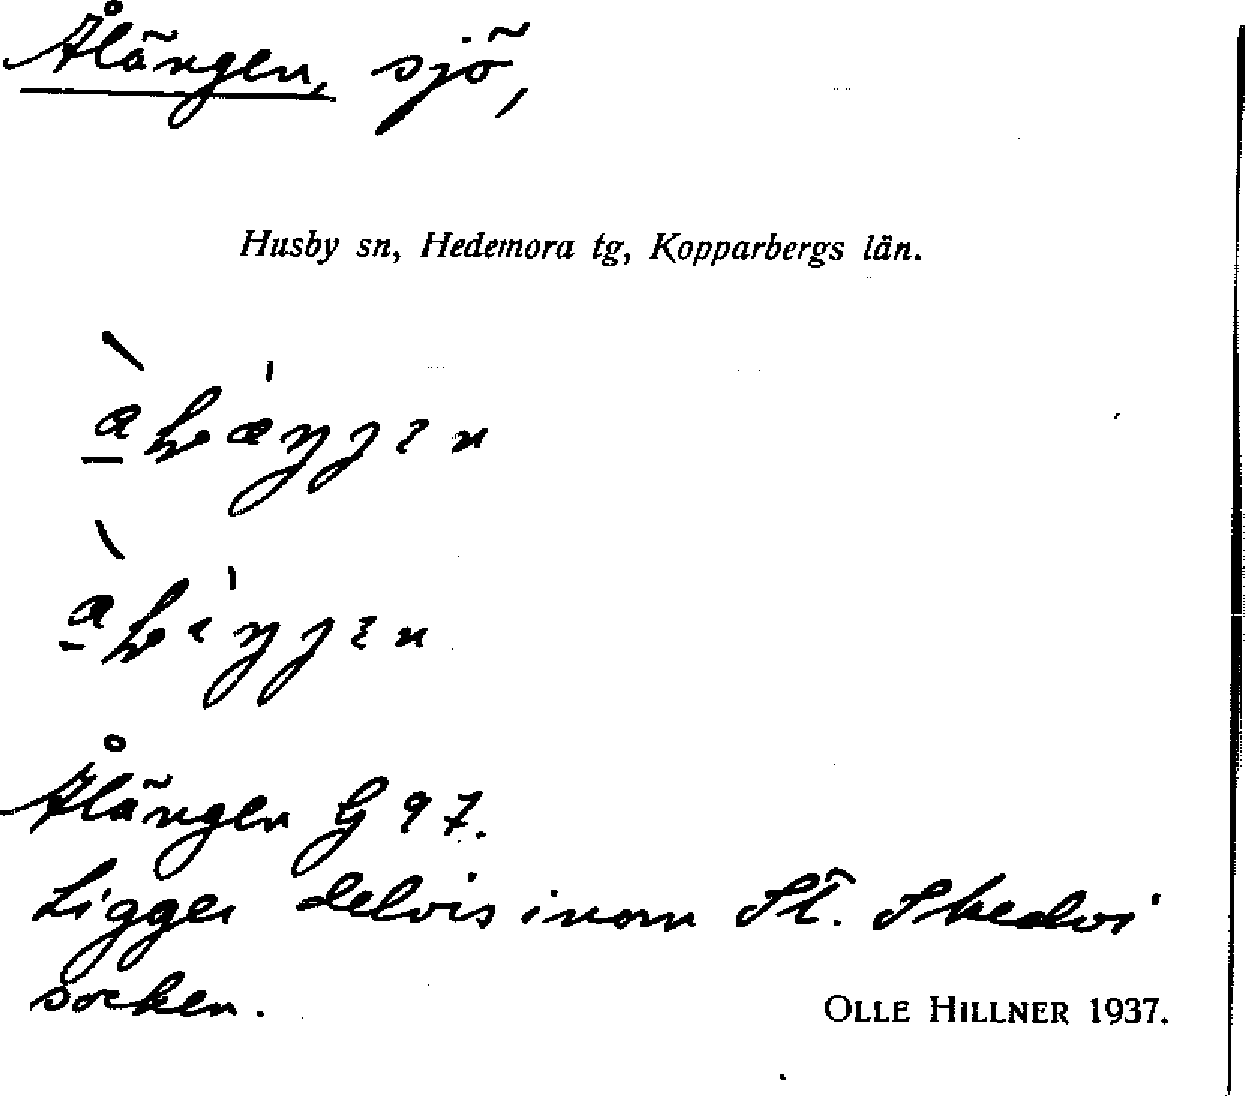 Ålängen, sjö,
Husby sn, Hedemora tg, Kopparbergs län.
Ålängen G 97.
Ligger delvis inom St. Skedvi
socken.
OLLE HILLNER 1937.